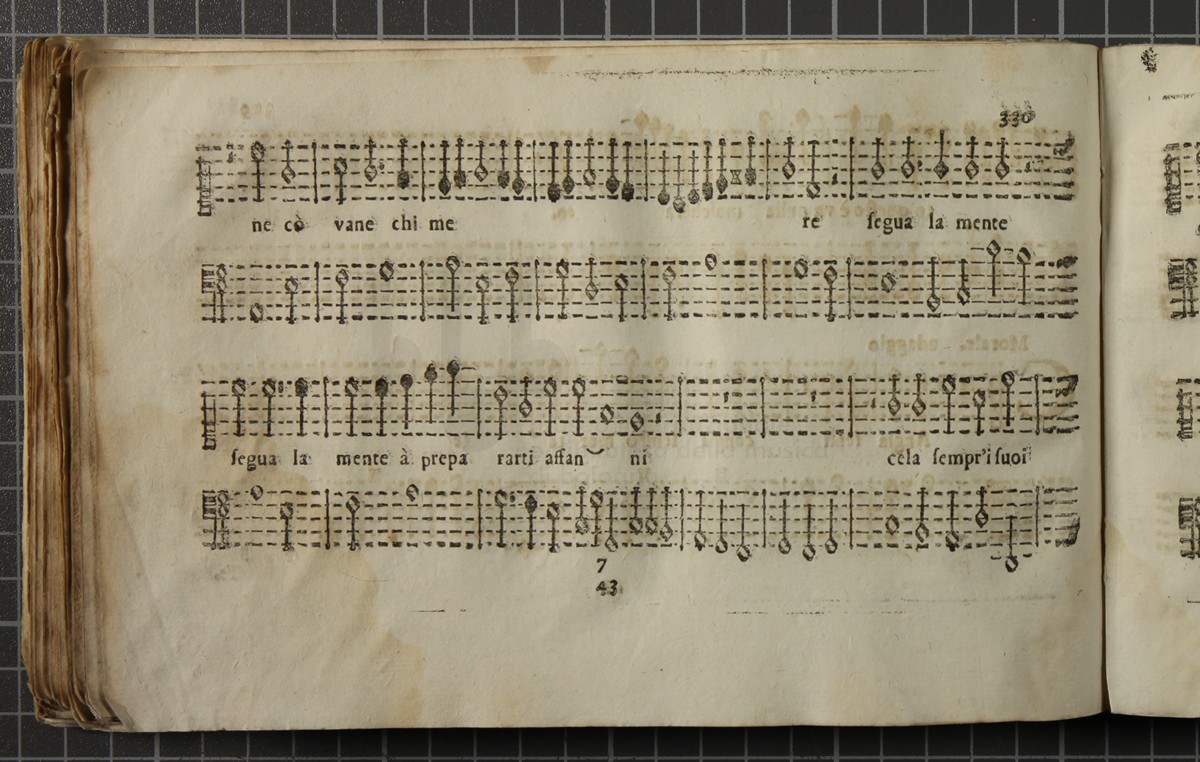 330
ne cò vane chi me re segua la mente
segua la mente à prepa rarti affan ni cela sempr'i suoi
7
43